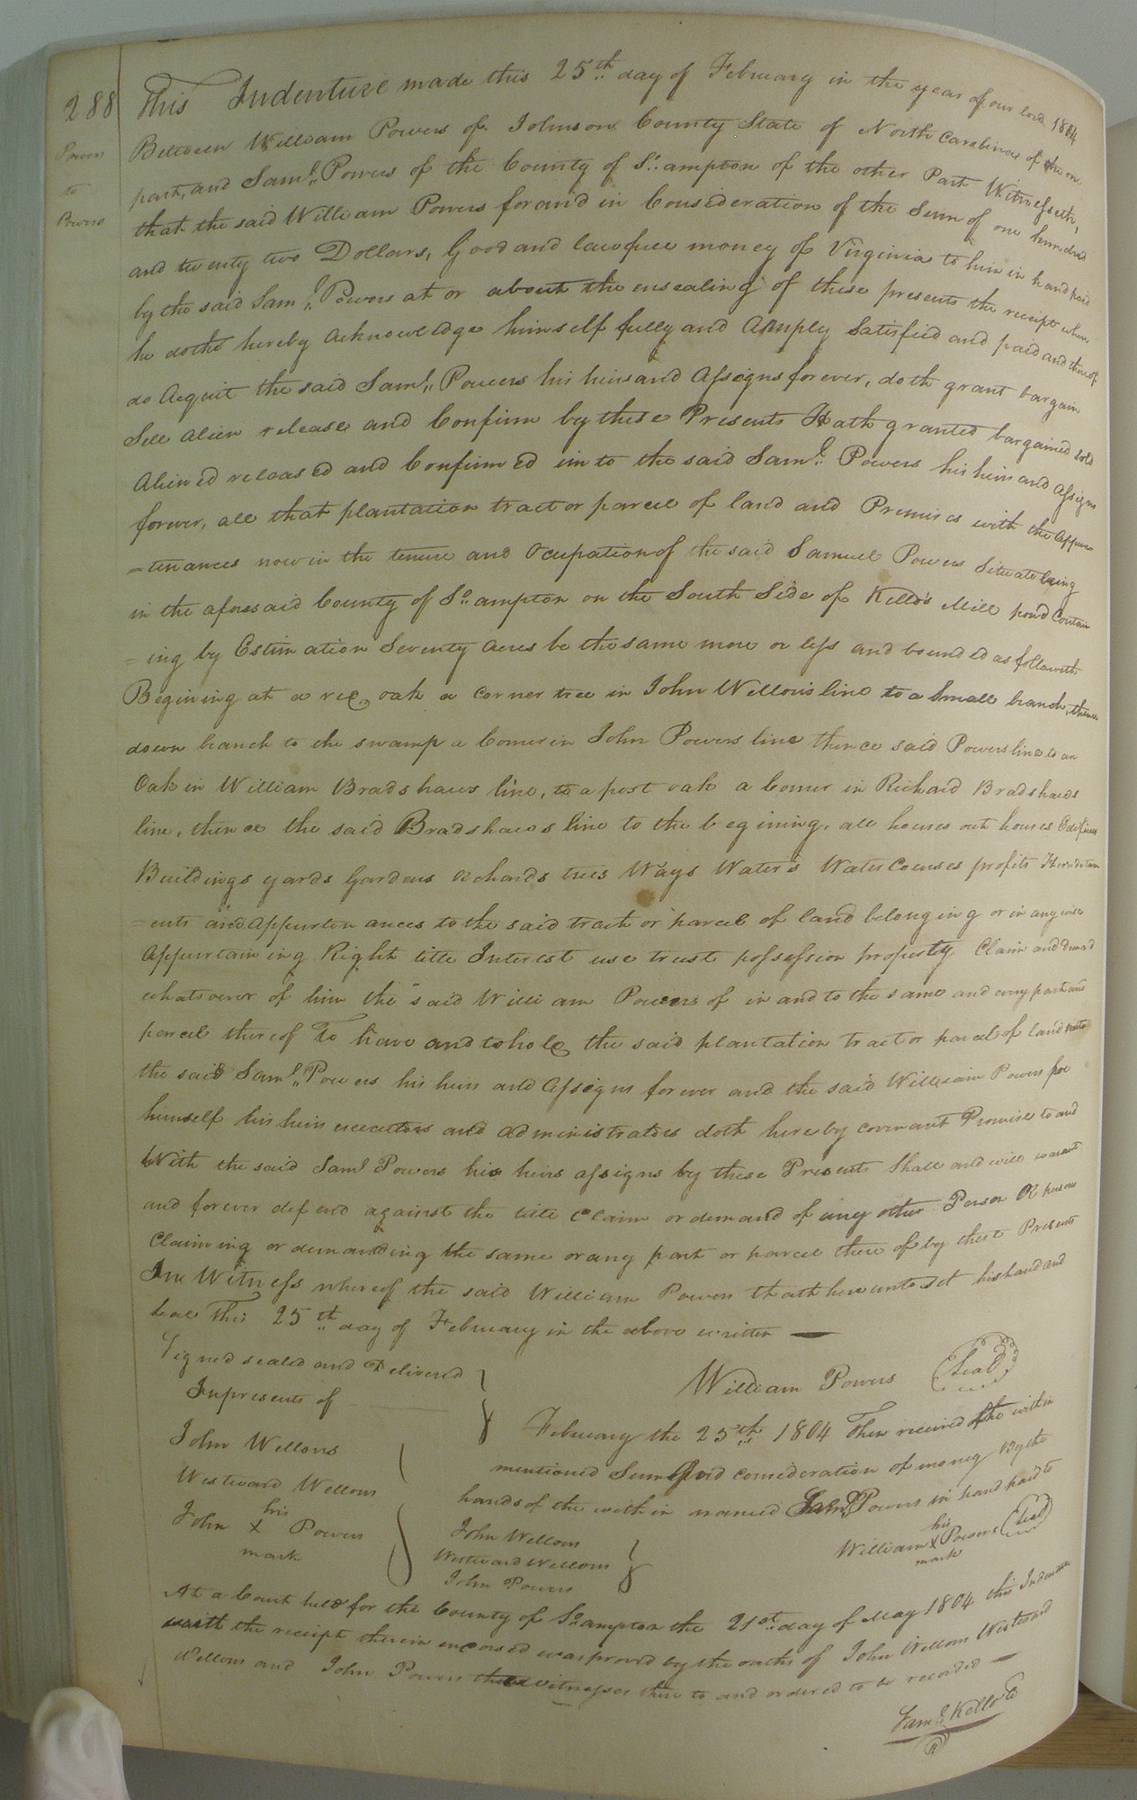 288
Powers
to
Powers
This Indenture made this 25th day of February in the year of our lord 1804
Between William Powers of Johnson County State of North Carolina of the one
part, and Saml. Powers of the County of So.ampton of the other Part Witnesseth,
that the said William Powers for and in Consideration of the Sum of one hundred
and twenty two Dollars, Good and lawfull money of Virginia to him in hand paid
by the said Saml. Powers at or about the ensealing of these presents the receipt where
he doth hereby acknowledge himself fully and Amply Satisfied and paid and thereof
do Acquit the said Saml. Powers his heirs and Assigns forever, doth grant bargain
Sell alien release and Confirm by these Presents Hath granted bargained sold
Aliened released and Confirmed unto the said Saml. Powers his heirs and Assigns
forever, all that plantation tract or parcel of land and Premises with the appur
-tenances now in the tenure and Ocupation of the said Samuel Powers Situate being
in the aforesaid County of So.ampton on the South Side of Kello's Mill pond Contain
-ing by Estimation Seventy acres be the same more or less and bounded as followeth
Begining at a red oak a corner tree in John Wellons line to a Small branch, thence
down branch to the swamp a Corner in John Powers line thence said Powers line to an
Oak in William Bradshaws line, to a post oak a Corner in Richard Bradshaws
line, thence the said Bradshaws line to the begining, all houses out houses Edifices
Buildings yards Gardens orchards trees Ways Waters Water Courses profits Heriditam
-ents and Appurtenances to the said tract or parcel of land belonging or in any wise
Appurtaining Right title Interest use trust possession property Claim and demand
whatsoever of him the said William Powers of in and to the same and every part and
parcel thereof To have and to hold the said plantation tract or parcel of land unto
the said Saml. Powers his heirs and Assigns forever and the said William Powers for
himself his heirs executors and administrators doth hereby covenant Promise to and
With the said Saml Powers his heirs assigns by these Presents Shall and will warant
and forever defend against the title Claim or demand of any other Person Or persons
Claiming or demanding the same or any part or parcel there of by these Presents
In Witness whereof the said William Powers hath hereunto set his hand and
seal This 25th day of February in the above written —
Signed sealed and Delivered
In presents of
William Powers (Seal)
John Wellons
Westward Wellons
his
John X Powers
mark
February the 25th 1804 Then received of the within
mentioned Sum Good consideration of money By the
hands of the with in named Saml. Powers in hand paid to
his
William X Powers (Seal)
mark
John Wellons
Westward Wellons
John Powers
At a Court held for the County of So.ampton the 21st day of May 1804 this Indenture
with the receipt therein endorsed was proved by the oaths of John Wellons Westward
Wellons and John Powers the witnesses there to and ordered to be recorded —
Saml. Kello C